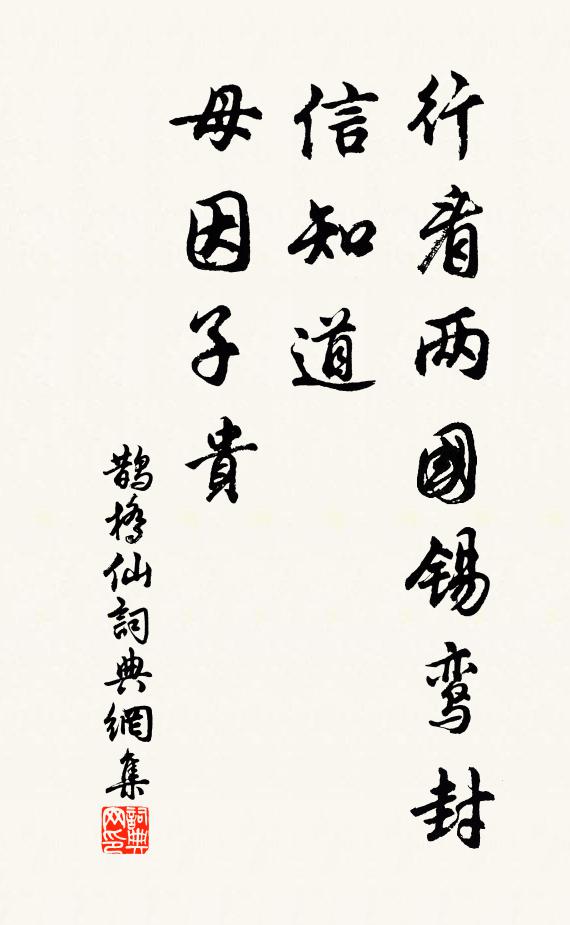 行看两國锡鸾封
信知道
母因子貴
鹊橋仙詞典網集
詞典网印